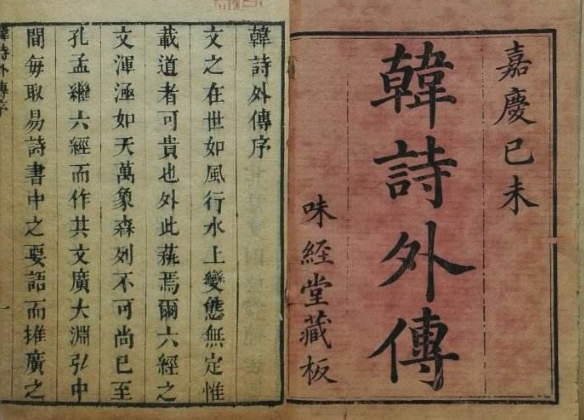 嘉慶己未
韓詩外傳
味經堂藏板
韓詩外傳序
文之在世如風行水上變態無定惟
載道者可貴也外此蕪焉爾六經之
文渾涵如天萬象森列不可尚已至
孔孟繼六經而作其文廣大淵弘中
間每取易詩書中之要語而推廣之
韓詩外傳序
一